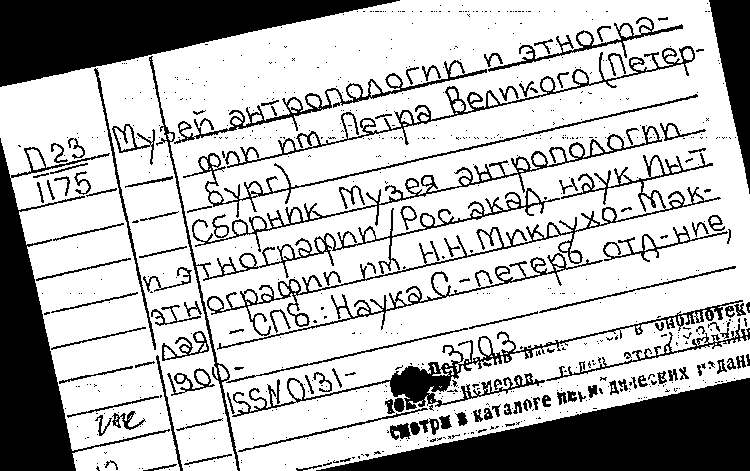 П23
1175
Музей антропологии и этногра-
фии им. Петра Великого (Петер-
бург)
Сборник Музея антропологии
и этнографии / Рос. акад. наук, Ин-т
этнографии им. Н.Н. Миклухо-Мак-
лая. – СПб.: Наука. С.-петерб. отд-ние,
1900-
ISSN 0131-
3703
Перечень в библиотеке
номеров, этого издания
смотри в каталоге периодических издан